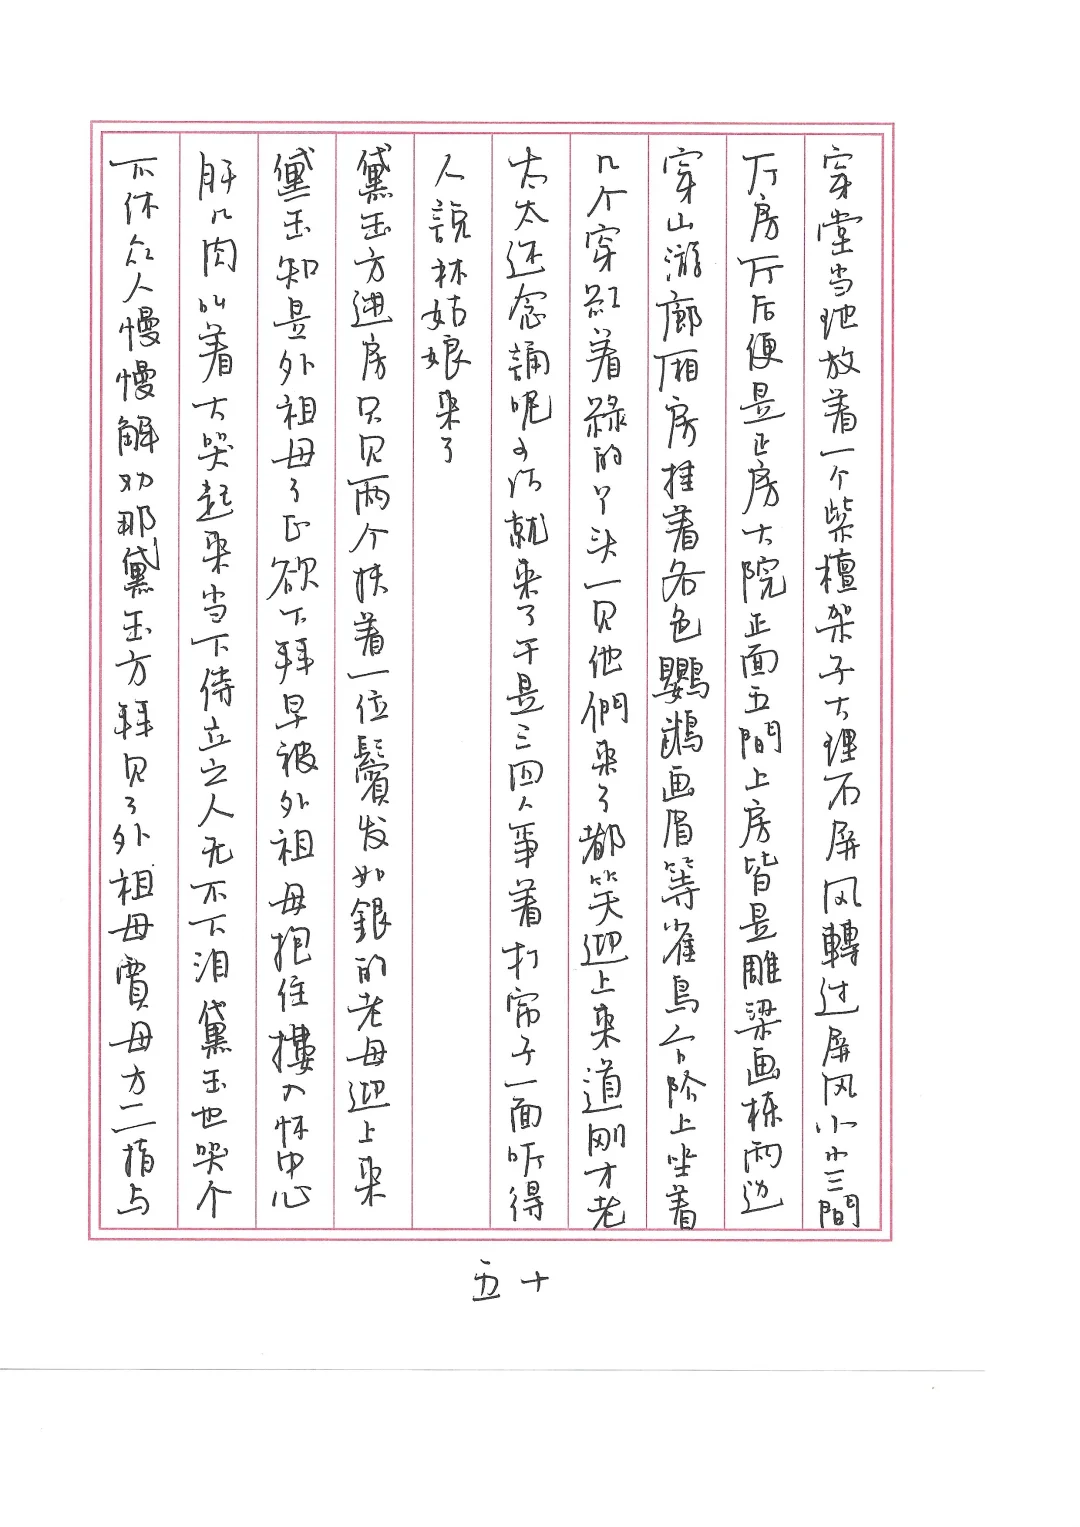 穿堂当地放着一个紫檀架子大理石屏风轉过屏风小小三間
厅房厅后便是正房大院正面五間上房皆是雕梁画栋两边
穿山游廊厢房挂着各色鸚鵡画眉等雀鳥台阶上坐着
几个穿紅着綠的丫头一见他們来了都笑迎上来道刚才老
太太还念誦呢可巧就来了于是三四人争着打帘子一面听得
人說林姑娘来了
黛玉方进房只见两个扶着一位鬢发如銀的老母迎上来
黛玉知是外祖母了正欲下拜早被外祖母抱住摟入怀中心
肝儿肉叫着大哭起来当下侍立之人无不下泪黛玉也哭个
不休众人慢慢解劝那黛玉方拜见了外祖母賈母方一一指与
五十